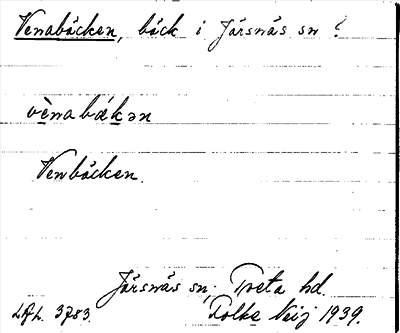 Venabäcken, bäck i Järsnäs sn ?
vènabækən
Venbäcken.
Järsnäs sn, Tveta hd.
LAL. 3783. Folke Neij 1939.